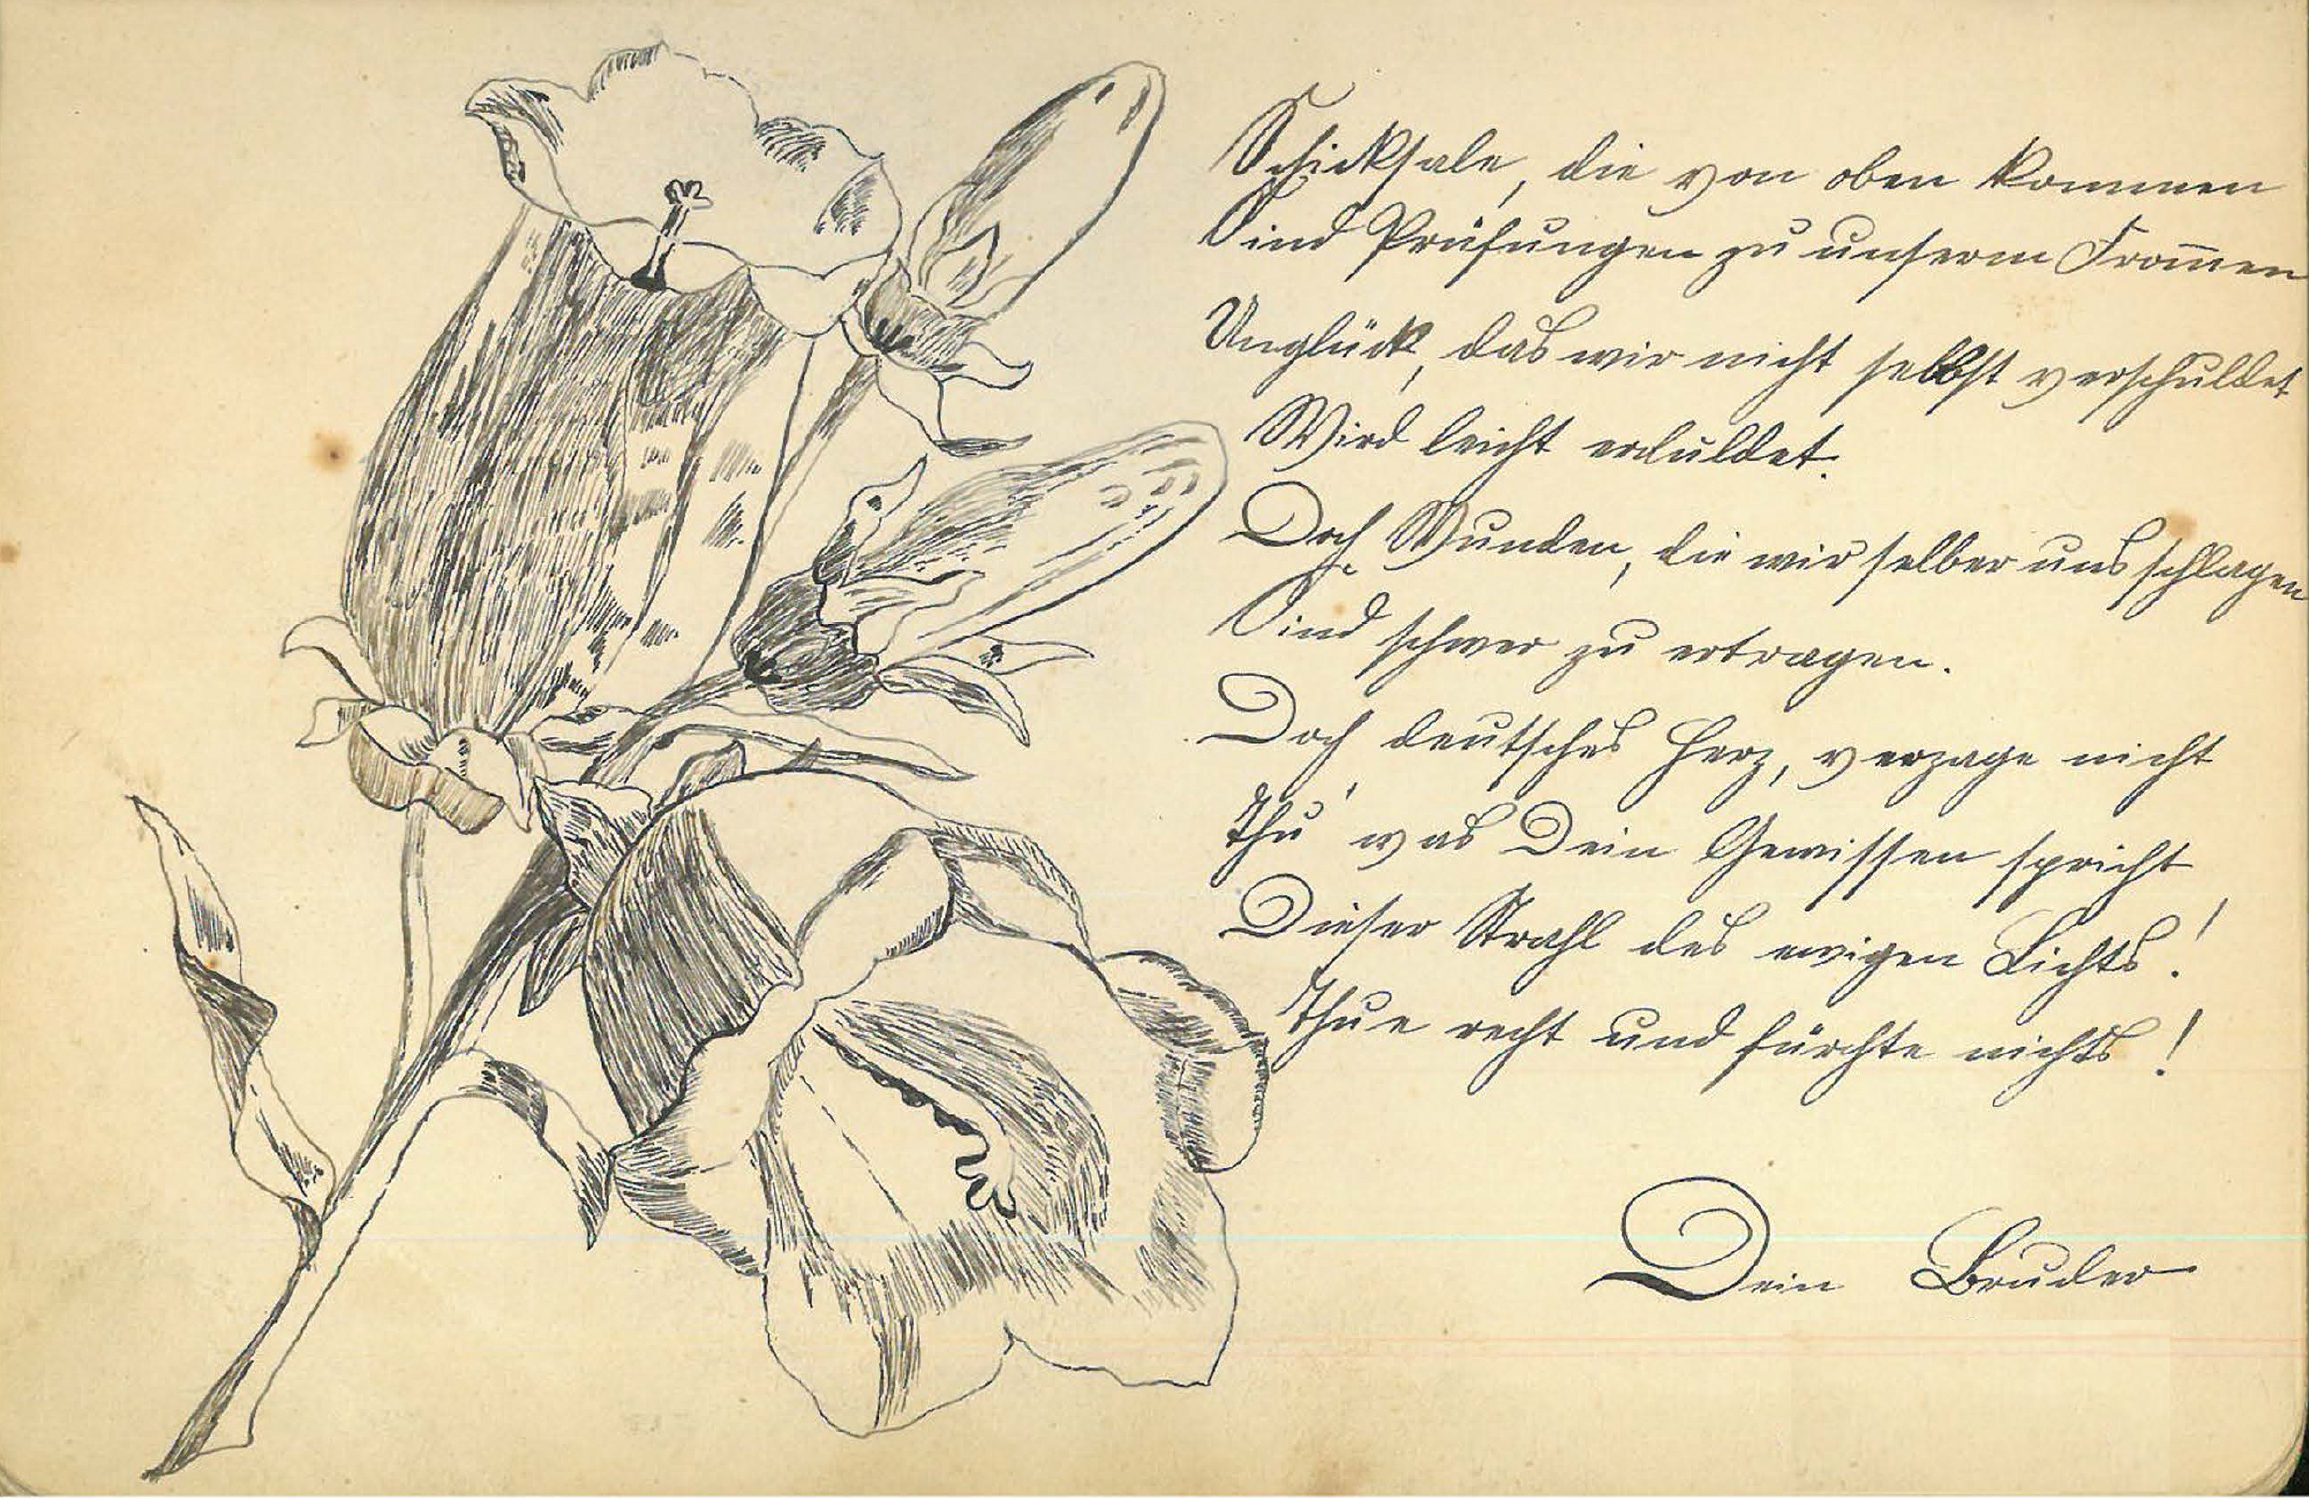 Schicksale, die von oben kommen
Sind Prüfungen zu unserm From̄en
Unglück, das wir nicht selbst verschuldet
Wird leicht erduldet.
Doch Wunden, die wir selber uns schlagen
Sind schwer zu ertragen.
Doch deutsches Herz, verzage nicht
Thu' was Dein Gewissen spricht
Dieser Strahl des ewigen Lichts!
Thue recht und fürchte nichts!
Dein Bruder